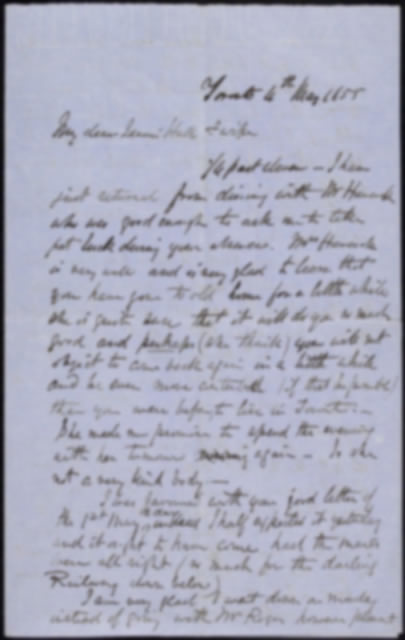 Toronto 4th May 1855
My dear Fanni wife
1/4 past eleven - I have
just returned from dining with Mr
who was good enough to ask me to take
pot luck during your absence. Mrs
is very well and is very glad to learn that
you have gone to old home for a little while
she is quite sure that it will do you so much
good and perhaps (she thinks) you will not
object to come back again in a little while
and be even more contented (if that be possible)
than you were before to live in Toronto -
She made me promise to spend the evening
with her tomorrow again - Is she
not a very kind body -
I was favoured with your good letter of
the 1st May I half expected it yesterday
and it ought to have come had the mails
been all right (so much for the darling
Railway down below)
I am very glad I went down on Monday
instead of going with Mr